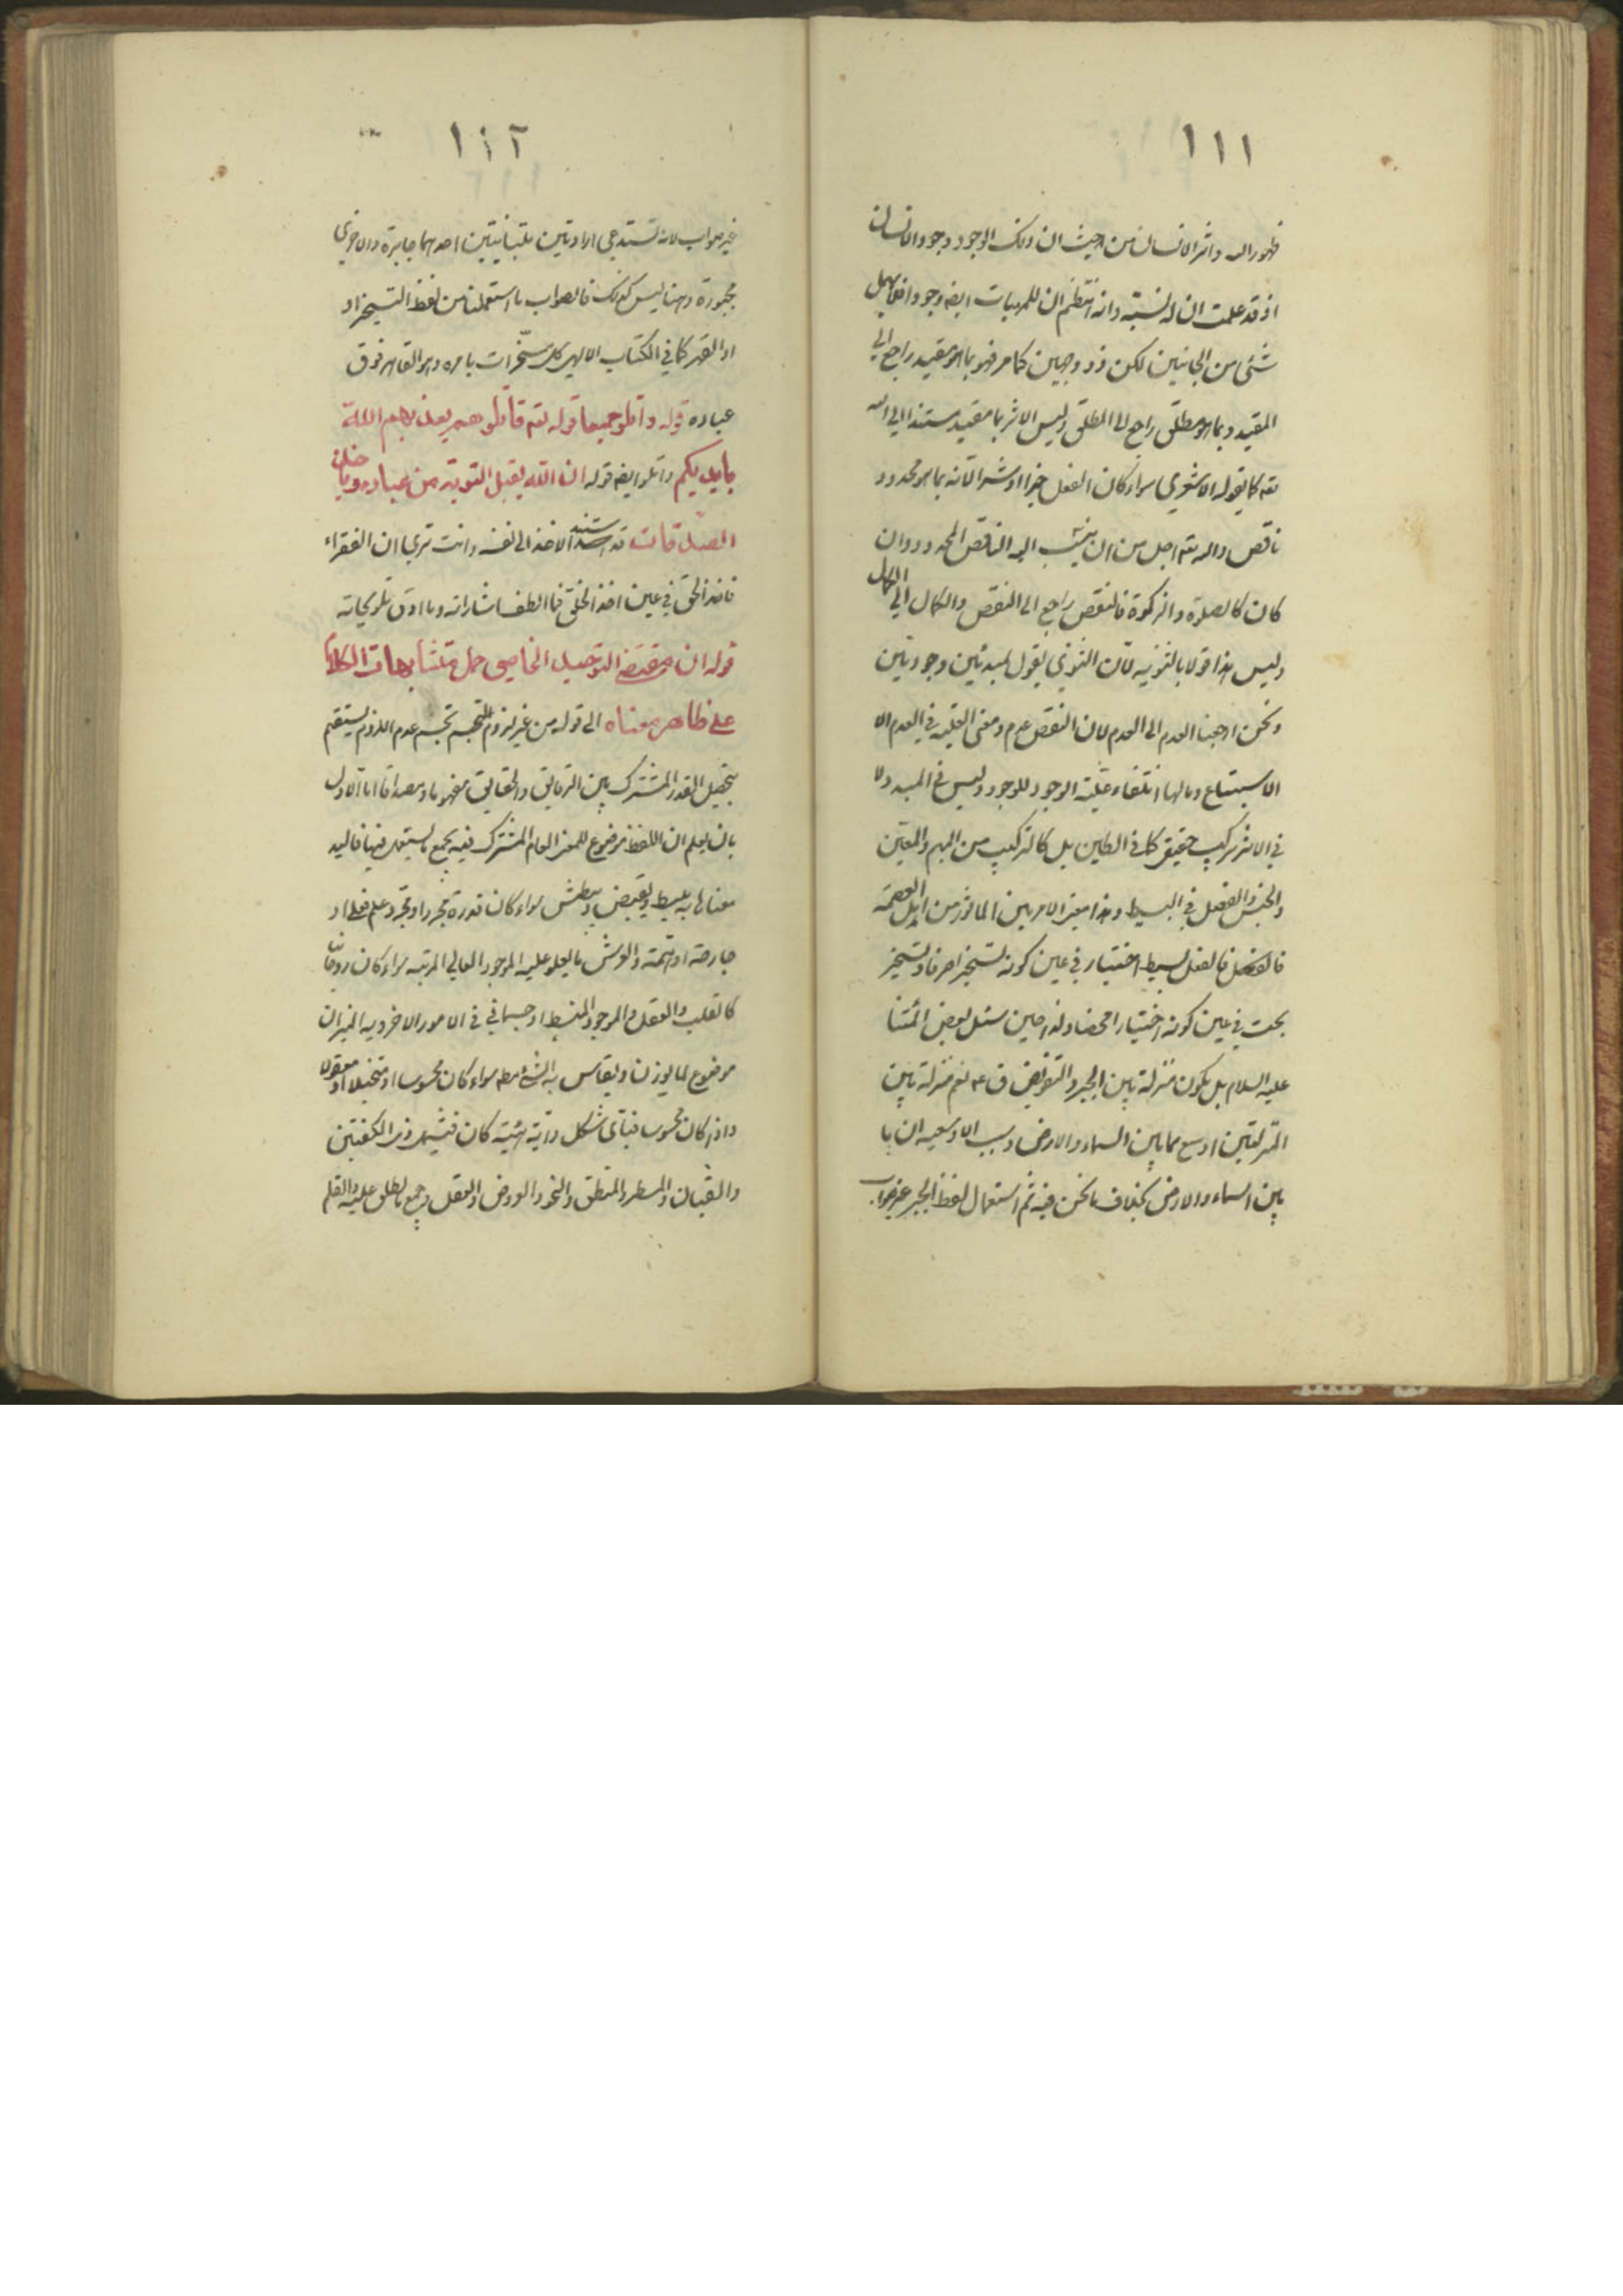 ١١١
ظهور الله واثر الانسان من حيث ان ذلك الوجود وجود الانسان
اذ قد علمت ان له نسبة وانه انتظم ان للمهيات ايضا وجودا فلا يهمل
شئ من الجانبين لكن ذو وجهين كما مر فهو بما هو مقيد راجع الى
المقيد وبما هو مطلق راجع الى المطلق وليس الاثر بما مقيد مستندا الى الله
تعه كما يقوله الاشعري سواء كان الفعل خيرا او شرا لانه بما هو محدود
ناقص والله تعه اجل من ان ينسب اليه الناقص المحدود وان
كان كالصلوة والزكوة فالنقص راجع الى النقص والكمال الى الكمال
وليس هذا قولا بالثنويه لان الثنوي يقول بمبدئين وجوديين
ونحن ارجعنا العدم الى العدم لان النقص عدم ومعنى العلية في العدم الا
الاستتباع ومالها انتفاء علية الوجود للوجود وليس في المبدء ولا
في الاثر تركيب حقيقي كما في الطين بل كالتركيب من المبهم والمعين
والجنس والفصل في البسيط وهذا معنى الامر بين الماثور من اهل العصمة
فالفعل بسيط اختيار في عين كونه تسخيرا صرفا وتسخير
بحت في عين كونه اختيارا محضا ولذا حين سئل بعض ائمتنا
عليه السلام بل يكون منزلة بين الجبر والتفويض ق ع نعم منزلة بين
المنزلتين اوسع مما بين السماء والارض وسبب الاوسعيه ان ما
بين السماء والارض بخلاف ما نحن فيه ثم استعمال لفظ الجبر غير صواب
١١٢
غير صواب لانه تستدعى ارادتين متباينتين احدهما جابرة والاخرى
مجبورة وههنا ليس كذلك فالصواب ما استعملنا من لفظ التسخير او
او القهر كما في الكتاب الالهي كل مسخرات بامره وهو القاهر فوق
عباده قوله واتلو جميعا قوله تعه قاتلوهم يعذبهم الله
بايديكم واتلو ايضا قوله ان الله يقبل التوبة من عباده وياخذ
الصدقات قد استند الاخذ الى نفسه وانت ترى ان الفقراء
فاخذ الحق في عين اخذ الخلق فما الطف اشاراته وما ادق تلويحاته
قوله ان مقتضى التوحيد الخاصي حمل متشابهات الكلام
على ظاهر معناه الى قوله من غير لزوم التجسم عدم اللزوم يستقيم
بتحصيل القدر المشترك بين الرقايق والحقايق مفهوما ومصداقا اما الاول
بان يعلم ان اللفظ موضوع للمعنى العام المشترك فيه بجميع يستعمل فيها فاليد
معناها ما به يبسط ويقبض ويبطش سواء كان قدرة مجردا ومجرد علم فعلى او
جارحة او همة والعرش ما يعلو عليه الموجود العالي المرتبه سواء كان روحانيا
كالقلب والعقل والموجود المنبسط او جسماني في الامور الاخرويه الميزان
موضوع لما يوزن او يقاس به الشئ مطه سواء كان محسوسا او متخيلا او معقولا
واذا كان محسوسا فباى شكل واية هيئة كان فيشمل ذى الكفتين
والقبان والمسطر والمنطق والنحو والعروض والعقل وجميع ما يطلق عليه والقلم